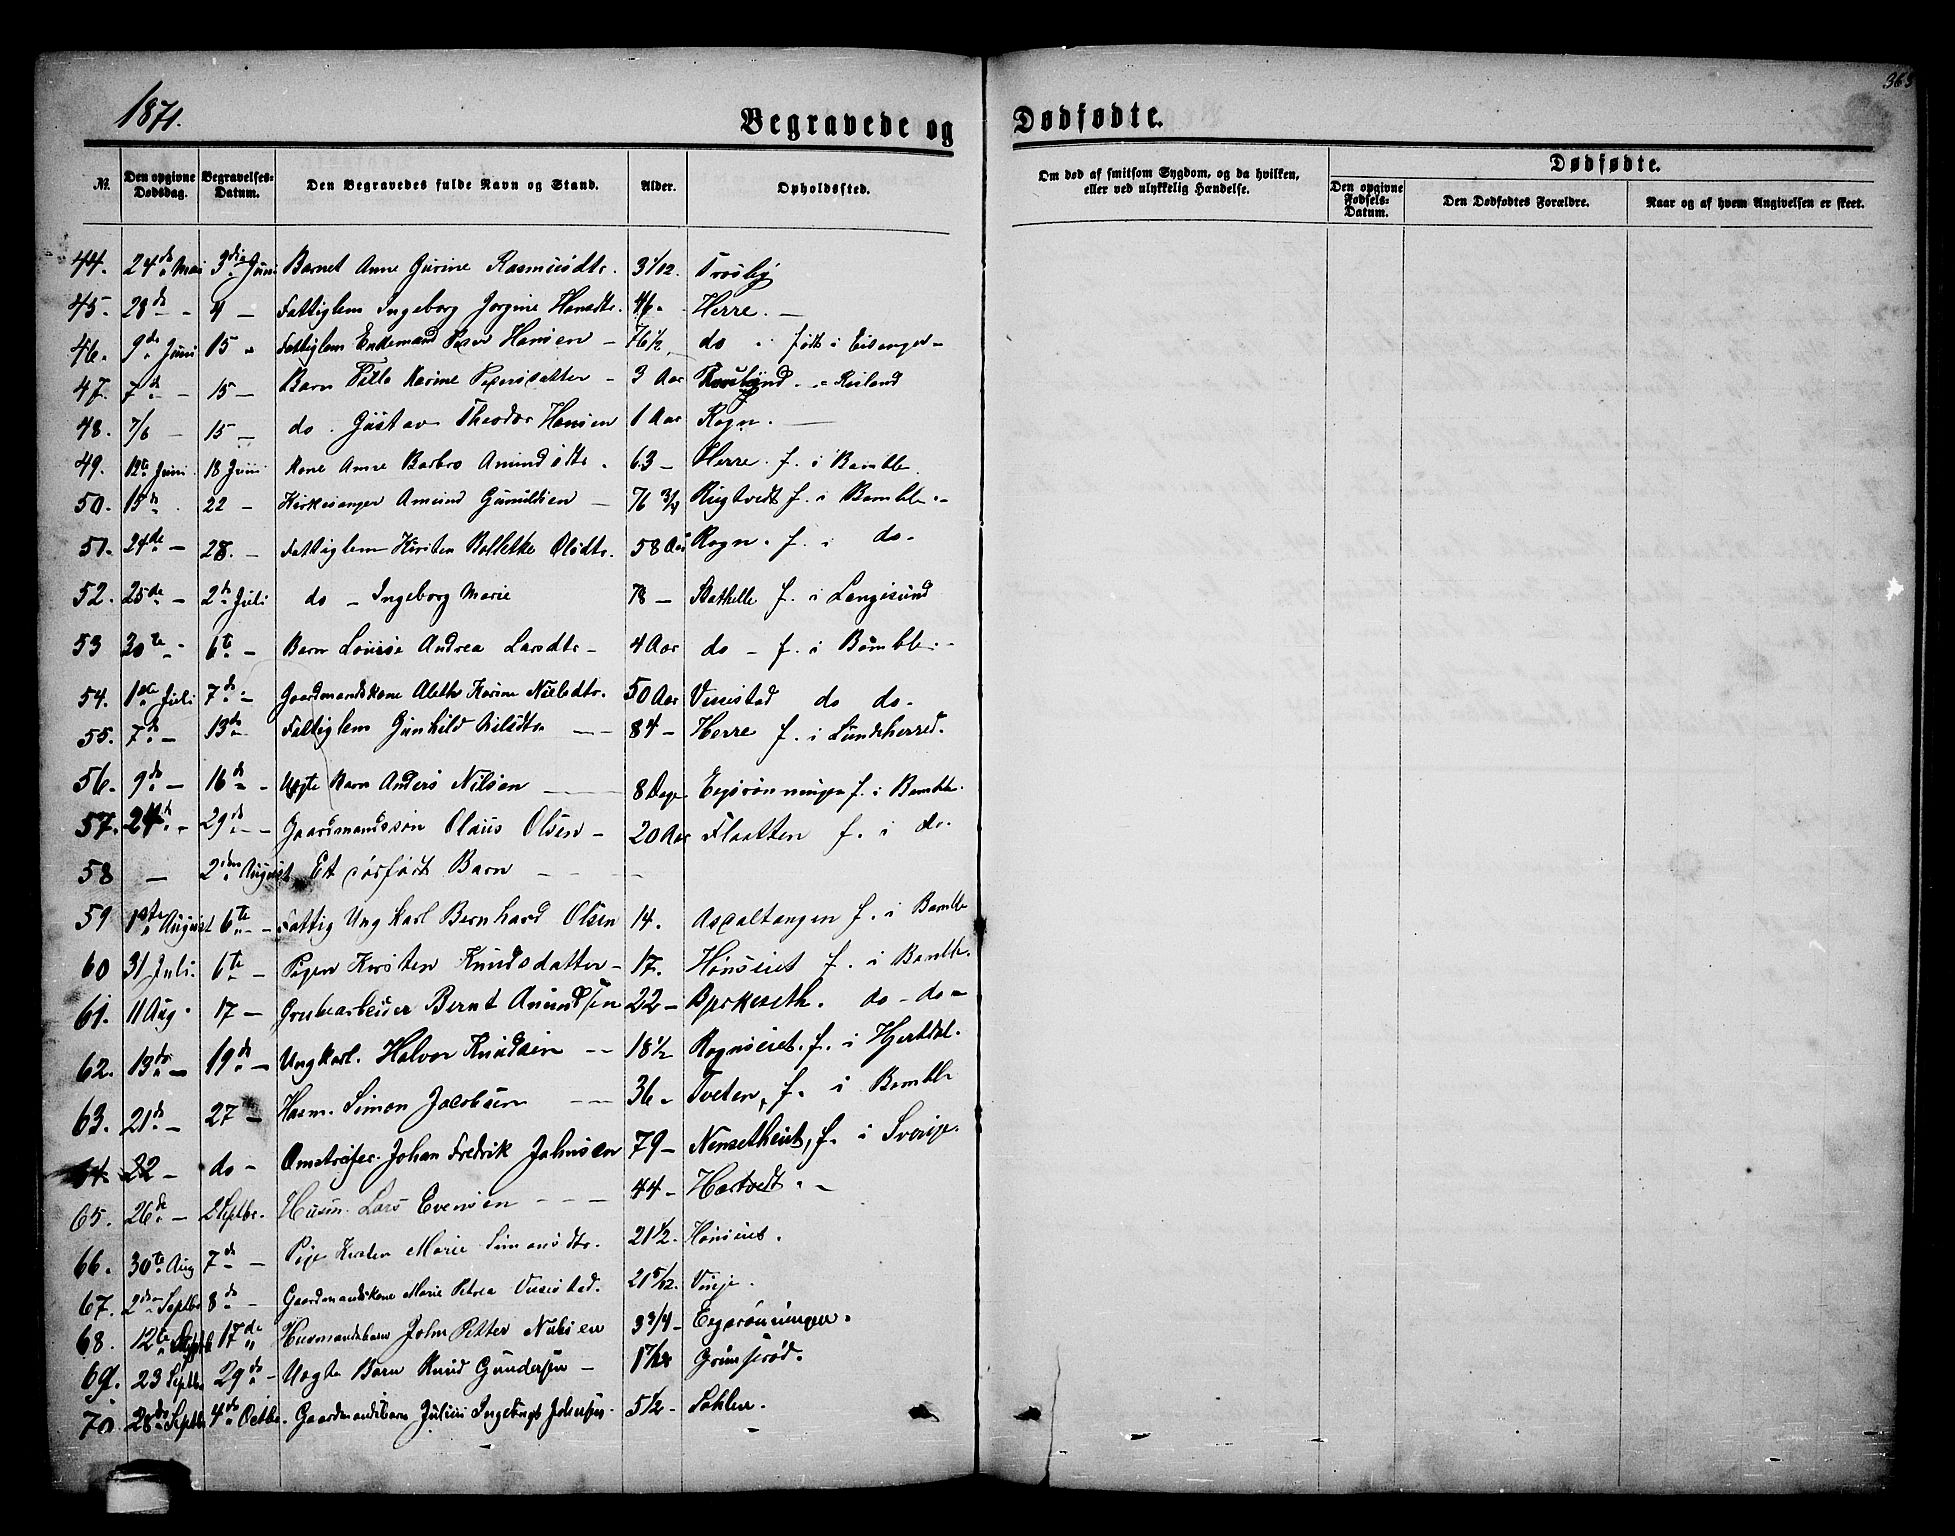 1871.
Begravede og Dødfødte.
363
№
Den opgivne Dødsdag.
Begravelses-Datum.
Den Begravedes fulde Navn og Stand.
Alder.
Opholdssted.
Om død af smitsom Sygdom, og da hvilken, eller ved ulykkelig Hændelse.
Dødfødte.
Den opgivne Fødsels-Datum.
Den Dødfødtes Forældre.
Naar og af hvem Angivelsen er skeet.
44. 24de Mai 3die Juni Barnet Anne Gurine Rasmusdtr. 3 1/12. Trosby
45. 28de - 4 - Fattiglem Ingeborg Jorgine Hansdtr. 46. Herre. -
46. 9de Juni 15 - Fattiglem Enkemand Peder Hansen - 76 1/2 do født i Eidanger -
47. 7de - 15 - Barn Karine Pedersdatter - 3 Aar
48. 7/6 - 15 - do. Gustav Theodor Hansen 1 Aar Rogn. -
49. 12te Juni 18 Juni Kone Anne Barbro Amundsdtr. 63 - Herre. f. i Bamble
50. 15de 22 - Kirkesanger Amund Gunildsen - 76 3/4 Rugtvedt f. i Bamble. -
51. 24de - 28. - Fattiglem Kirsten Bollette Olsdtr. 58 Aar Rogn. f. i do.
52. 25de - 2de Juli do - Ingeborg Marie 78 - Stathelle f. i Langesund
53 30te - 6te - Barn Lovise Andrea Larsdtr - 4 Aar do - f. i Bamble. -
54. 1ste Juli 7de - Gaardmandskone Aleth Karine Nielsdtr. 50 Aar Vissestad do do.
55. 7de - 13de Fattiglem Gunhild Nilsdtr - - 84 - Herre f. i Lundeherred.
56. 9de - 16de - Uægte Barn Anders Nilsen - 8 Dage Eegsrønningen f. i Bamble.
57. 24de - 29de - Gaardmandssøn Olaus Olsen - 20 Aar Flaatten f. i do.
58 - 2den August Et dødfødt Barn - - - -
59 1ste August 6te - Fattig Ungkarl Bernhard Olsen 14. Asvaltangen f. i Bamble
60 31 Juli. 6te - Pigen Kirsten Knudsdatter - 17. Hønseiet f. i Bamble.
61. 11 Aug. 17 - Grubearbeider Bernt Amundsen 22 - Bjerkeseth. do - do -
62. 13de - 19de - Ungkarl. Halvor Knudsen - - 18 1/2 Rognseiet. f. i Hjertdal.
63. 21de - 27 - Huusm. Simon Jacobsen - - 36 - Tveten, f. i Bamble
64 22 - do - Omstreifer. Johan Fredrik Johnsen 79 - Nensetheiet, f. i Sverige.
65. 26de - 2 Septbr. Husm. Lars Evensen - - - 44 - Hartvedt. -
66. 30te Aug 7de - Pige Kirsten Marie Simonsdtr. 21 1/2. Hønseiet.
67. 2den Septbr 8de - Gaardmandskone Marie Petrea Vissestad. 21 5/12. Vinje.
68. 12te Septbr 17de Husmandsbarn John Petter Nilsen 3 3/4 - Eegsrønningen.
69. 23 Septbr 29de - Uægte Barn Knud Gundersen - 1 7/12 Grumsrød.
70. 28de Septbr 4de Octbr. Gaardmandsbarn Julius Ingebrigt Johnsen. 5 1/2 - Sohlen.